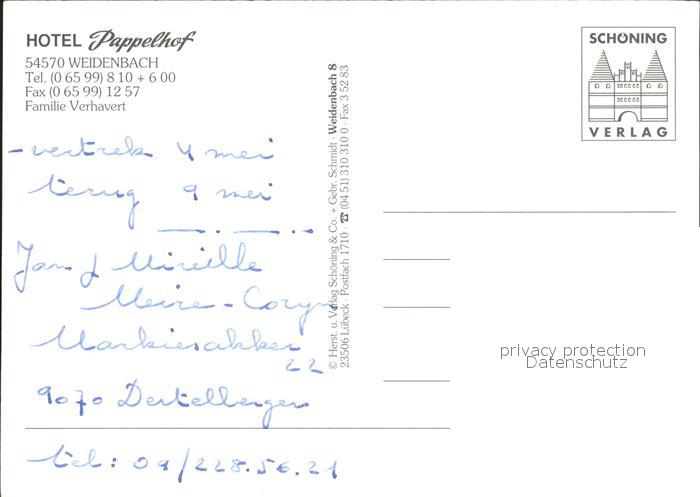 HOTEL Pappelhof
54570 WEIDENBACH
Tel. (0 65 99) 8 10 + 6 00
Fax (0 65 99) 12 57
Familie Verhavert
- vertrek 4 mei
terug 9 mei
Jan & Mireille
Meire - Coryn
Markiesakker
22
9070 Destelbergen
tel: 09/228.56.21
© Herst. u. Verlag Schöning & Co. + Gebr. Schmidt · Weidenbach 8
23506 Lübeck · Postfach 1710 · ☎ (04 51) 310 310 0 · Fax 3 52 83
SCHÖNING
VERLAG
privacy protection
Datenschutz